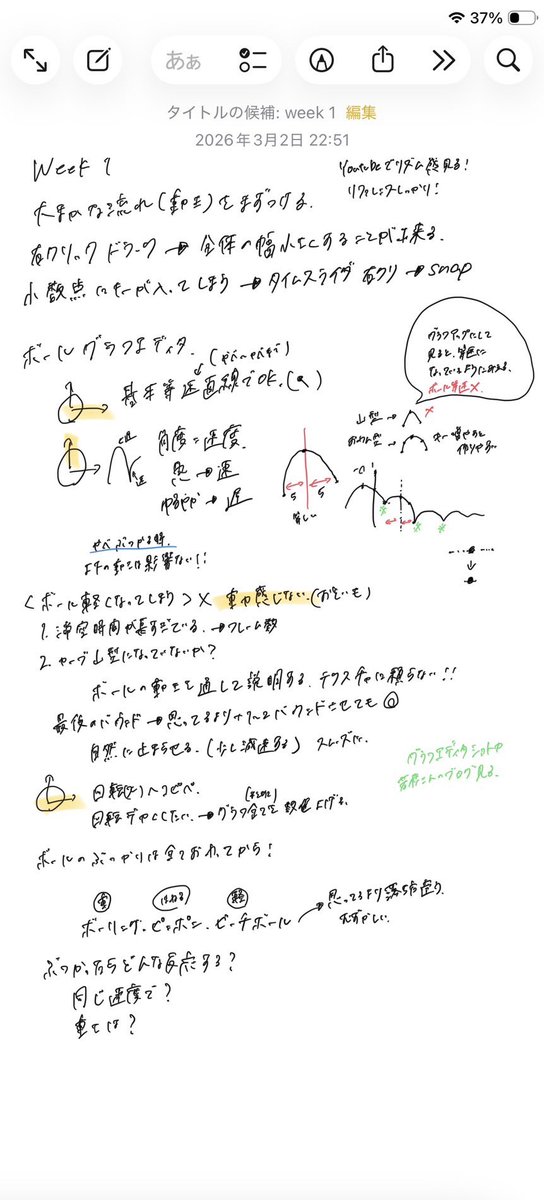 37%
あぁ
タイトルの候補: week 1 編集
2026年3月2日 22:51
Week 1
Youtubeでリズム感見る!
リファレンスしっかり!
大まかな流れ(動き)をまずつける.
右クリック ドラーグ → 全体の幅小さくすることが出来る.
小数点にキーが入ってしまう → タイムスライダ 右クリ → snap
ボール グラフエディタ.
基本等速直線でOK.
グラフアップにして
見ると、等速に
なっているように見える.
ボール等速×.
山型→ ×
おわん型→
角度=速度.
急 → 速
ゆるやか → 遅
5 5
等しい
かべぶつかる時.
上下の動きは影響ない!!
<ボール軽くなってしまう> × 重力感じない.(おそいも)
1. 滞空時間が長すぎている. →フレーム数
2. カーブ山型になっていないか?
ボールの動きを通して説明する. テクスチャに頼らない!!
最後のバウンド → 思ってるより+1〜2バウンドさせても
自然に止まらせる. (少し減速する) スムーズに.
グラフエディタ
ブログ見る.
回転
回転 → グラフ全てを 数値 上げる.
ボールのぶつかりは全ておわってから!
重 はねる 軽
ボーリング. ピンポン. ビーチボール → 思ってるより落ち方
むずかしい.
ぶつかったらどんな反応する?
同じ速度で?
重さは?